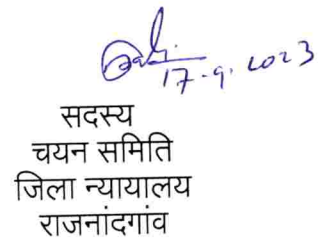 17-9-2023
सदस्य
चयन समिति
जिला न्यायालय
राजनांदगांव